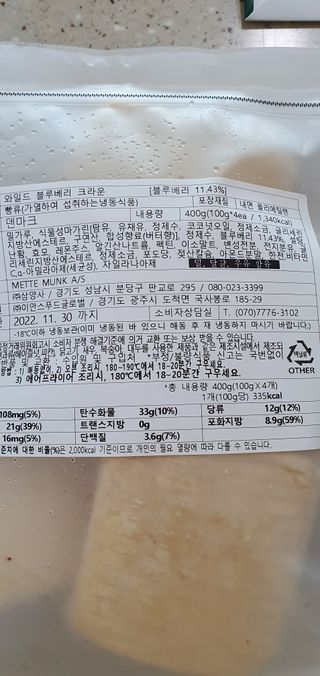 와일드 블루베리 크라운 [블루베리 11.43%]
빵류(가열하여 섭취하는냉동식품) 포장재질 내면 폴리에틸렌
덴마크 내용량 400g(100g*4ea / 1,340kcal)
밀가루, 식물성마가린(팜유, 유채유, 정제수, 코코넛오일, 정제소금, 글리세린
지방산에스테르, 구연산, 합성향료(버터향)], 정제수, 블루베리 11.43%, 설탕,
난황, 효모, 레몬주스, 알긴산나트륨, 펙틴, 이소말트, 변성전분, 천지포도당,
리세린지방산에스테르, 정제소금, 포도당, 젖산칼슘, 아몬드분말, 한천, 비타민
C,α-아밀라아제(세균성), 자일라나아제
METTE MUNK A/S
㈜삼양사 / 경기도 성남시 분당구 판교로 295 / 080-023-3399
㈜이안스푸드글로벌 / 경기도 광주시 도척면 국사봉로 185-29
2022. 11. 30 까지 소비자상담실 T. (070)7776-3102
-18℃이하 냉동보관(이미 냉동된 바 있으니 해동 후 재 냉동하지 마시기 바랍니다.)
소비자 분쟁 해결기준에 의거 교환 또는 보상 받을 수 있습니다
반품 및 교환 : 수입원 및 구입처 부정/불량식품 신고는 국번없이
180-190℃에서 18-20분간 구우세요.
3) 에어프라이어 조리시, 180℃에서 18-20분간 구우세요.
OTHER
*총 내용량 400g(100g X 4개)
1개(100g당) 335kcal
108mg(5%) 탄수화물 33g(10%) 당류 12g(12%)
21g(39%) 트랜스지방 0g 포화지방 8.9g(59%)
16mg(5%) 단백질 3.6g(7%)
준치에 대한 비율(%)은 2,000kcal 기준이므로 개인의 필요 열량에 따라 다를 수 있습니다.